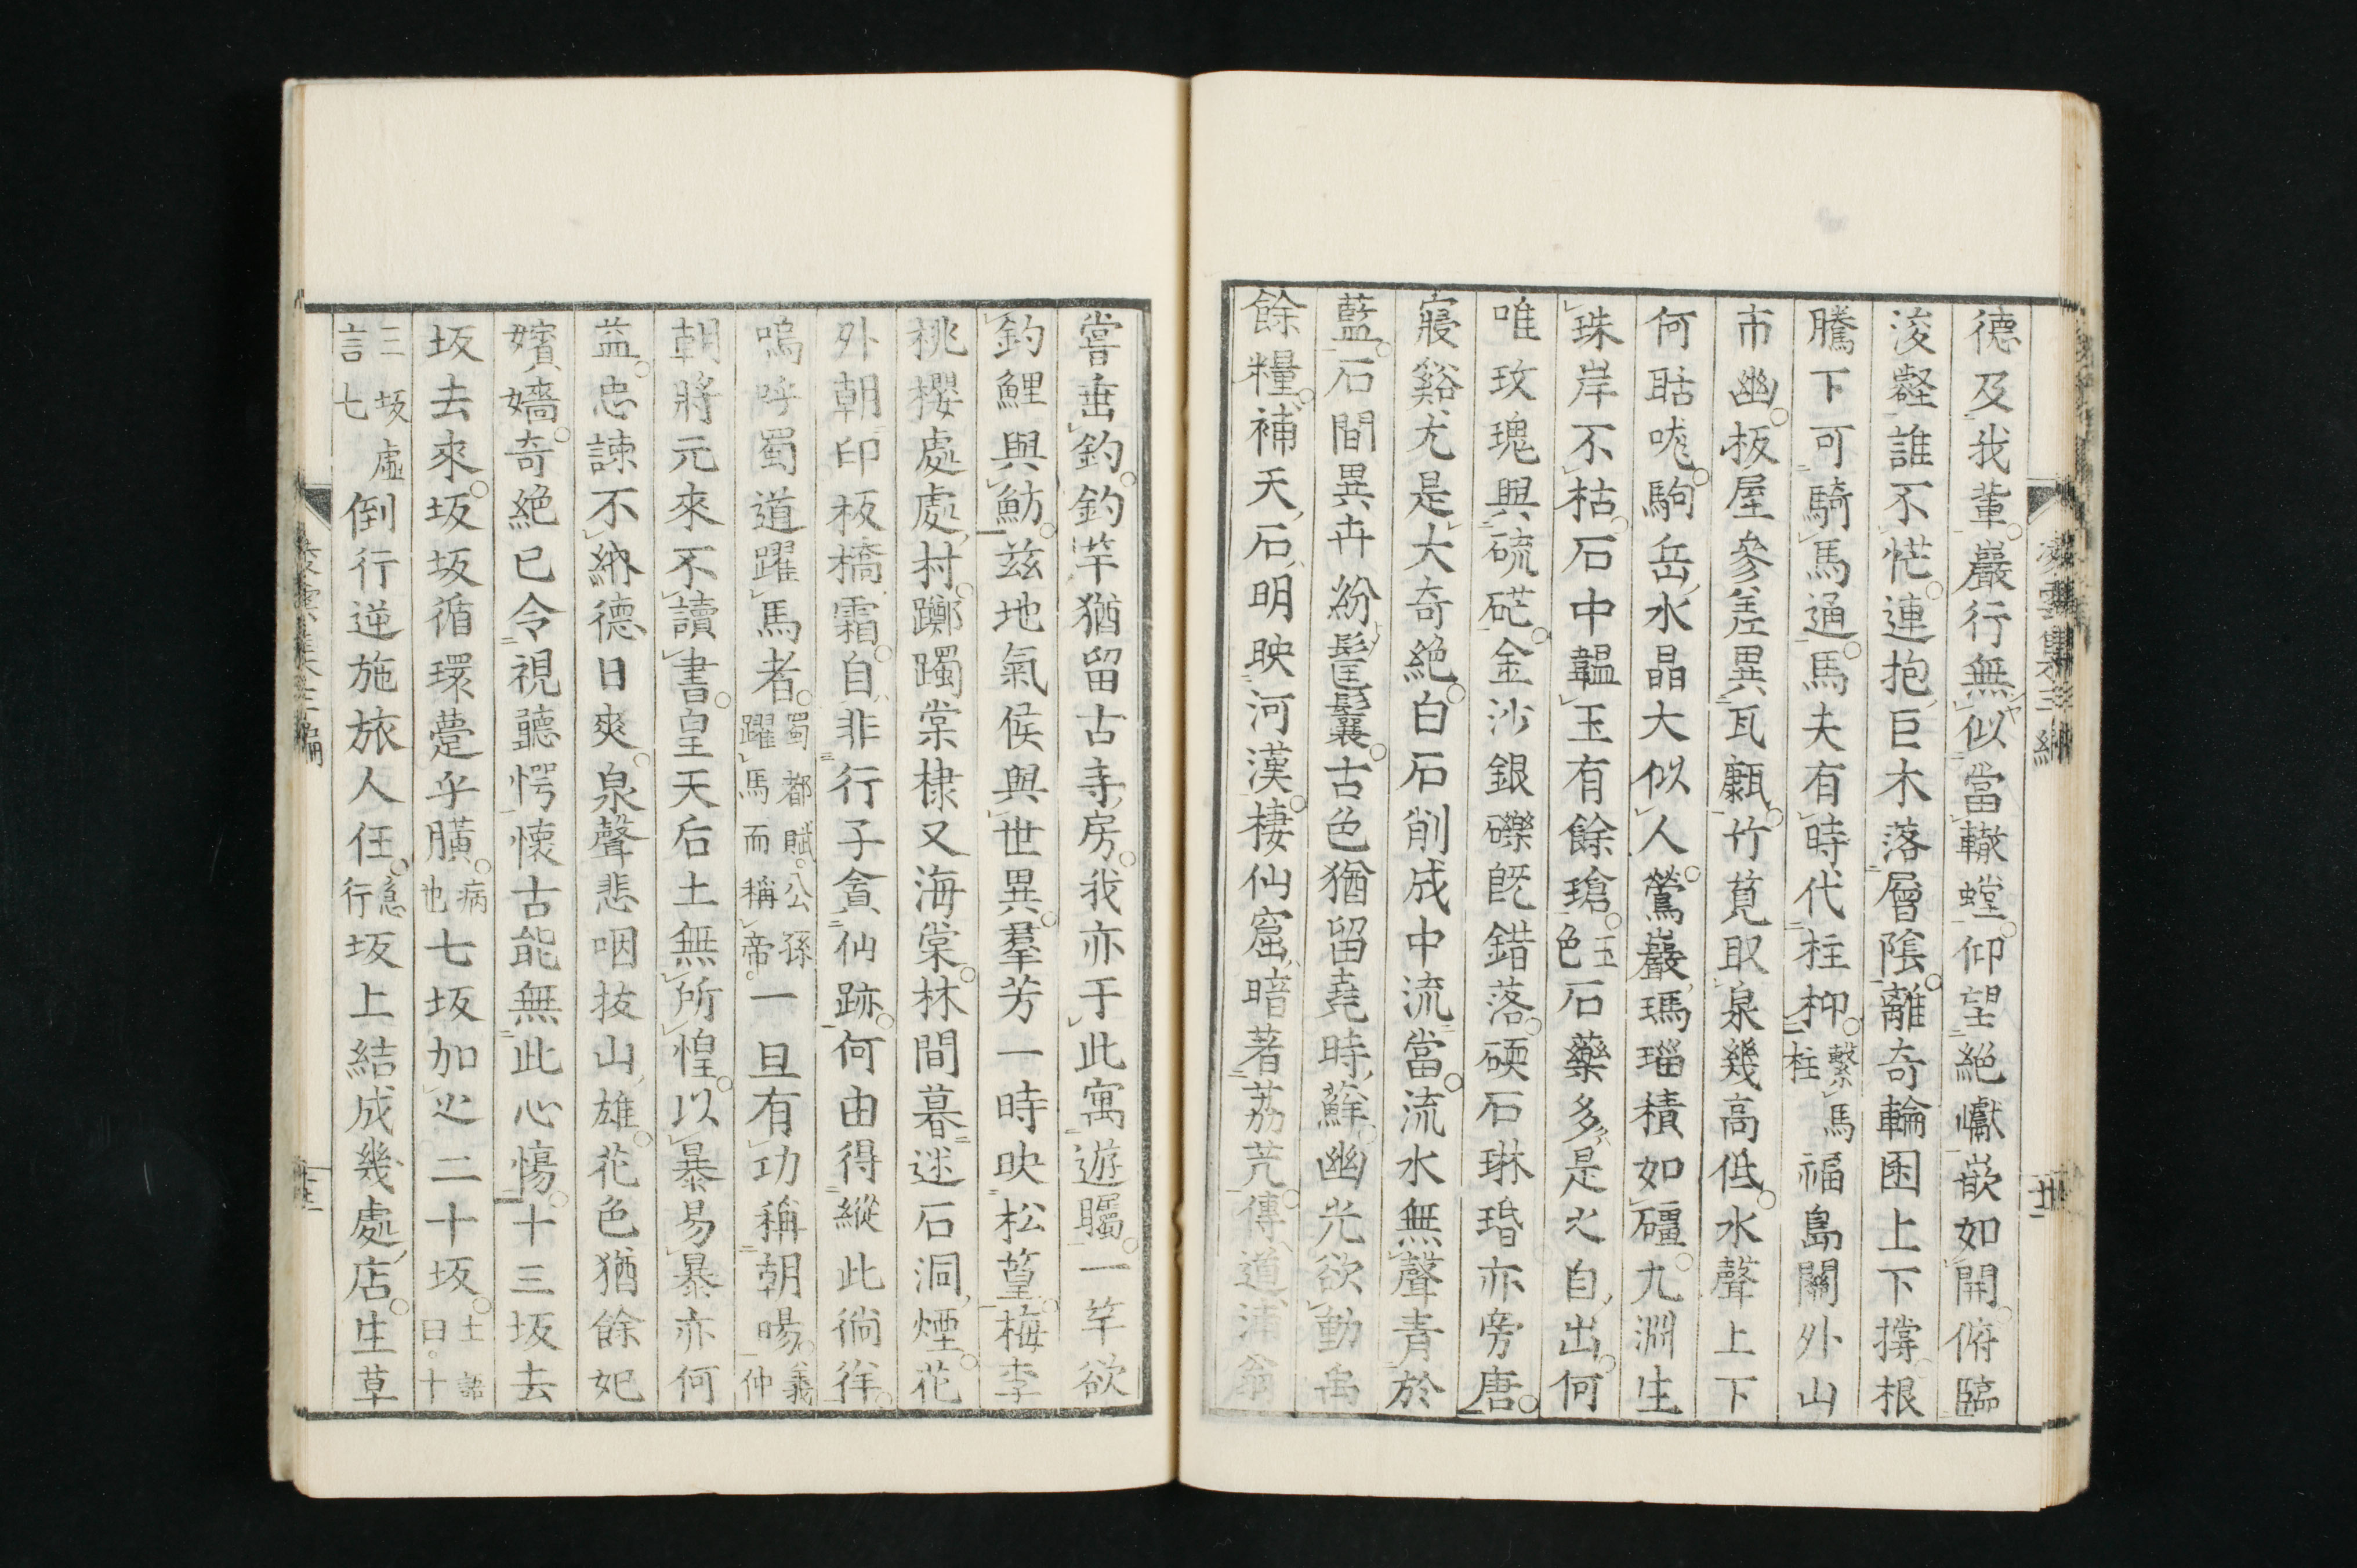 德及我輩巖行無似當轍螳仰望絕巘嵌如開俯臨
浚壑誰不恾連抱巨木落層陰離奇輪囷上下撐根
騰下可騎馬通馬夫有時代柱枊繫馬柱福島關外山
市幽板屋參差異瓦甗竹筧取泉幾高低水聲上下
何聒咙駒岳水晶大似人鶯巖瑪瑙積如礓九淵生
珠岸不枯石中韞玉有餘瑲玉色石藥多是之自出何
唯玫瑰與硫硭金沙銀礫旣錯落碝石琳珉亦旁唐
寢谿尤是大奇絕白石削成中流當流水無聲青於
藍石間異卉紛鬅鬤古色猶留堯時蘚幽光欲動禹
餘糧補天石明映河漢棲仙窟暗著荔芫傳道浦翁
嘗垂釣釣竿猶留古寺房我亦于此寓遊矚一竿欲
釣鯉與魴茲地氣侯與世異羣芳一時映松篁梅李
桃櫻處處村躑躅棠棣又海棠林間暮迷石洞煙花
外朝印板橋霜自非行子貪仙跡何由得縱此徜徉
嗚呼蜀道躍馬者蜀都賦公孫躍馬而稱帝一旦有功稱朝暘羲仲
朝將元來不讀書皇天后土無所惶以暴易暴亦何
益忠諫不納德日爽泉聲悲咽抜山雄花色猶餘妃
嬪嬙奇絕已令視聽愕懷古能無此心愓十三坂去
坂去來坂坂循環躉乎膹病也七坂加之二十坂土語曰十
三坂虛言七倒行逆施旅人任急行坂上結成幾處店生草